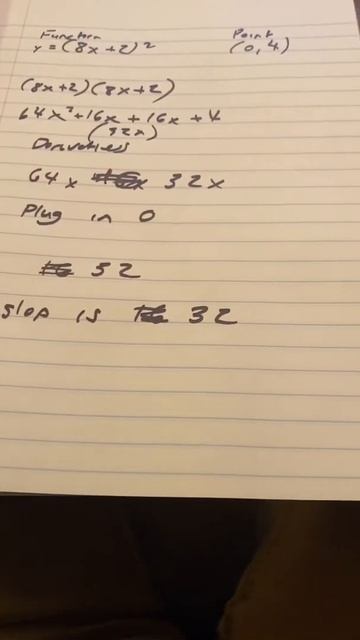 Function Point
y = (8x+2)² (0,4)
(8x+2)(8x+2)
64x²+16x+16x+4
(32x)
Derivatives
64x 32x
Plug in 0
32
slop is 32